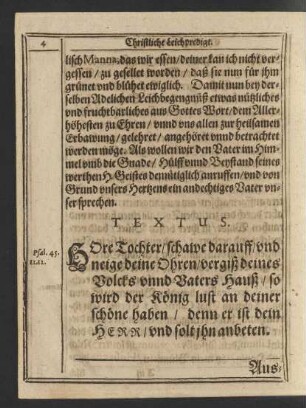 4
Christliche Leichpredigt.
lisch Manna, das wir essen / deiner kan ich nicht ver-
gessen / zu gesellet worden / daß sie nun für ihm
grünet vnd blühet ewiglich. Damit nun bey der-
selben Adelichen Leichbegengnüß etwas nützliches
vnd fruchtbarliches aus Gottes Wort / dem Aller-
höhesten zu Ehren / vnnd vns allen zur heilsamen
Erbawung / gelehret / angehöret vnnd betrachtet
werden möge. Als wollen wir den Vater im Him-
mel vmb die Gnade / Hülff vnnd Beystand seines
werthen H. Geistes demütiglich anruffen / vnd von
Grund vnsers Hertzens ein andechtiges Vater vn-
ser sprechen.
TEXTUS.
Psal. 45.
11.12.
HOre Tochter / schawe darauff / vnd
neige deine Ohren / vergiß deines
Volcks vnnd Vaters Hauß / so
wird der König lust an deiner
schöne haben / denn er ist dein
HERR / vnd solt jhn anbeten.
Aus-